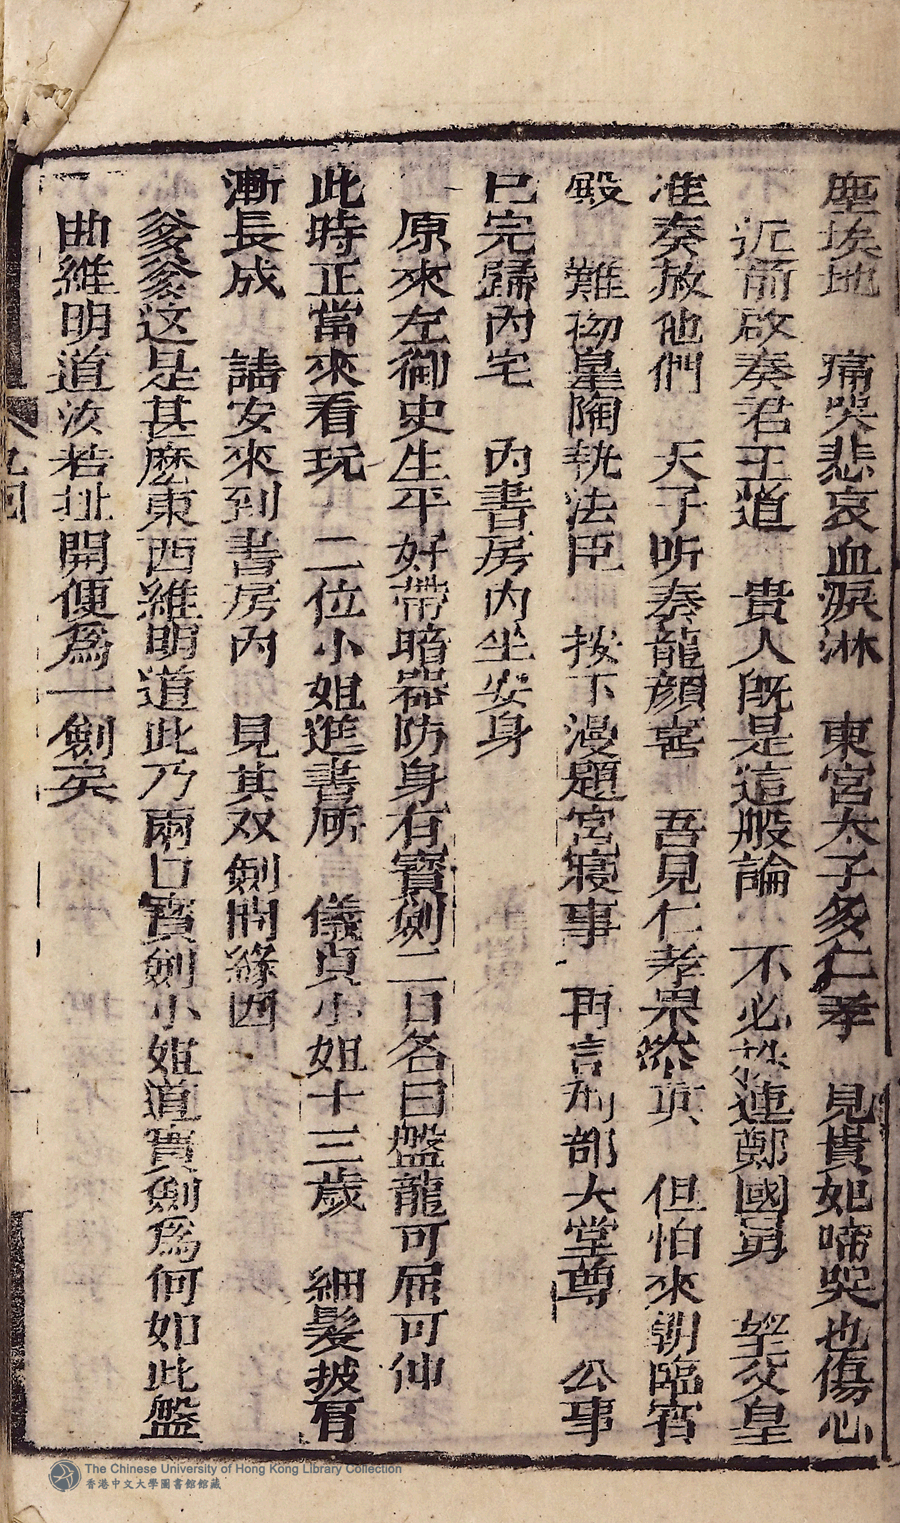 塵埃地　痛哭悲哀血淚淋　東宮太子多仁孝　見貴妃啼哭也傷心
近前啟奏君王道　貴人既是這般論　不必株連鄭國舅　望父皇
准奏放他們　天子听奏龍顏喜　吾見仁孝果然真　但怕來朝臨賓
殿　難掽皇陶執法臣　按下漫題宮寢事　再言刑部大堂尊　公事
已完歸內宅　內書房內坐安身
原來左御史生平好帶暗器防身有寶劍二口各曰盤龍可屈可伸
此時正當來看玩　二位小姐進書房　儀貞小姐十三歲　細髮披肩
漸長成　請安來到書房內　見其双劍問緣因
爹爹这是甚麽東西維明道此乃兩口寶劍小姐道寶劍爲何如此盤
曲維明道汝若扯開便爲一劍矣
九回
The Chinese University of Hong Kong Library Collection
香港中文大學圖書館館藏